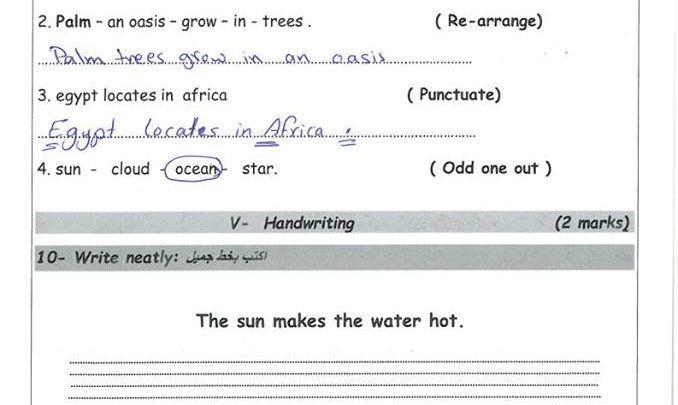 2. Palm - an oasis - grow - in - trees . ( Re-arrange)
Palm trees grow in an oasis
3. egypt locates in africa ( Punctuate)
Egypt locates in Africa .
4. sun - cloud - ocean - star. ( Odd one out )
V- Handwriting (2 marks)
10- Write neatly: اكتب بخط جميل
The sun makes the water hot.